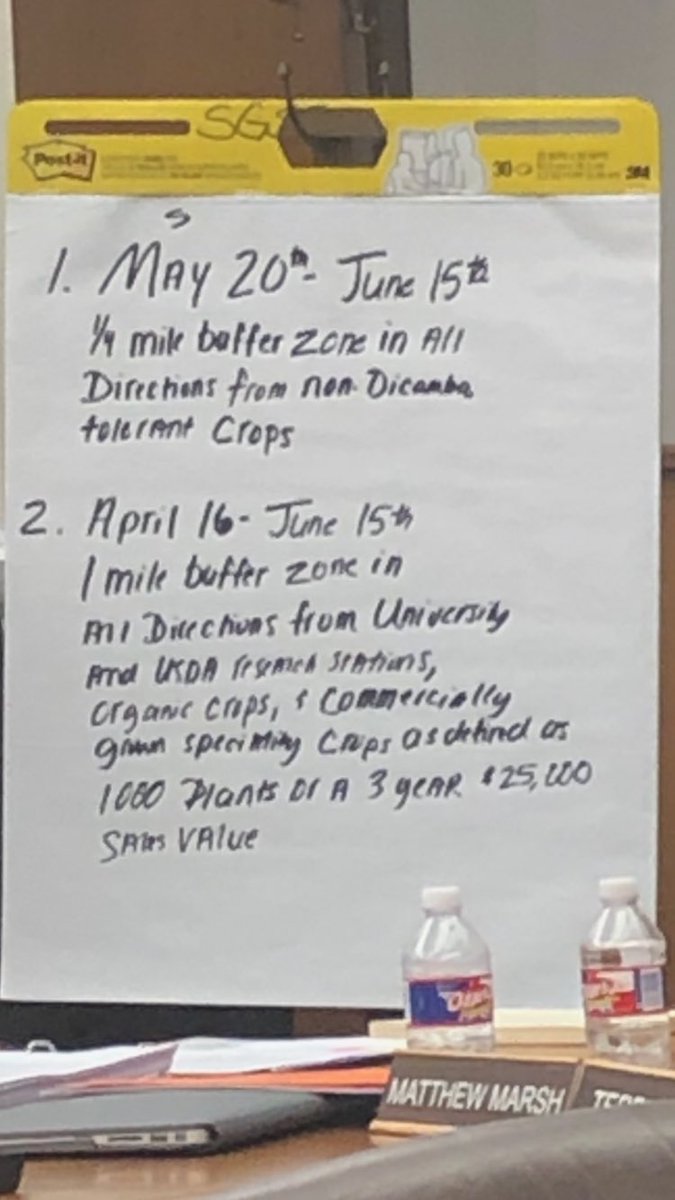 SG
Post-it
30
3M
s
1. MAY 20th - June 15th
1/4 mile buffer zone in All
Directions from non-Dicamba
tolerant Crops
2. April 16 - June 15th
1 mile buffer zone in
All Directions from University
And USDA research stations,
organic crops, & Commercially
grown specialty Crops as defined as
1000 Plants or A 3 year $25,000
SAles VAlue
Ozarka
MATTHEW MARSH